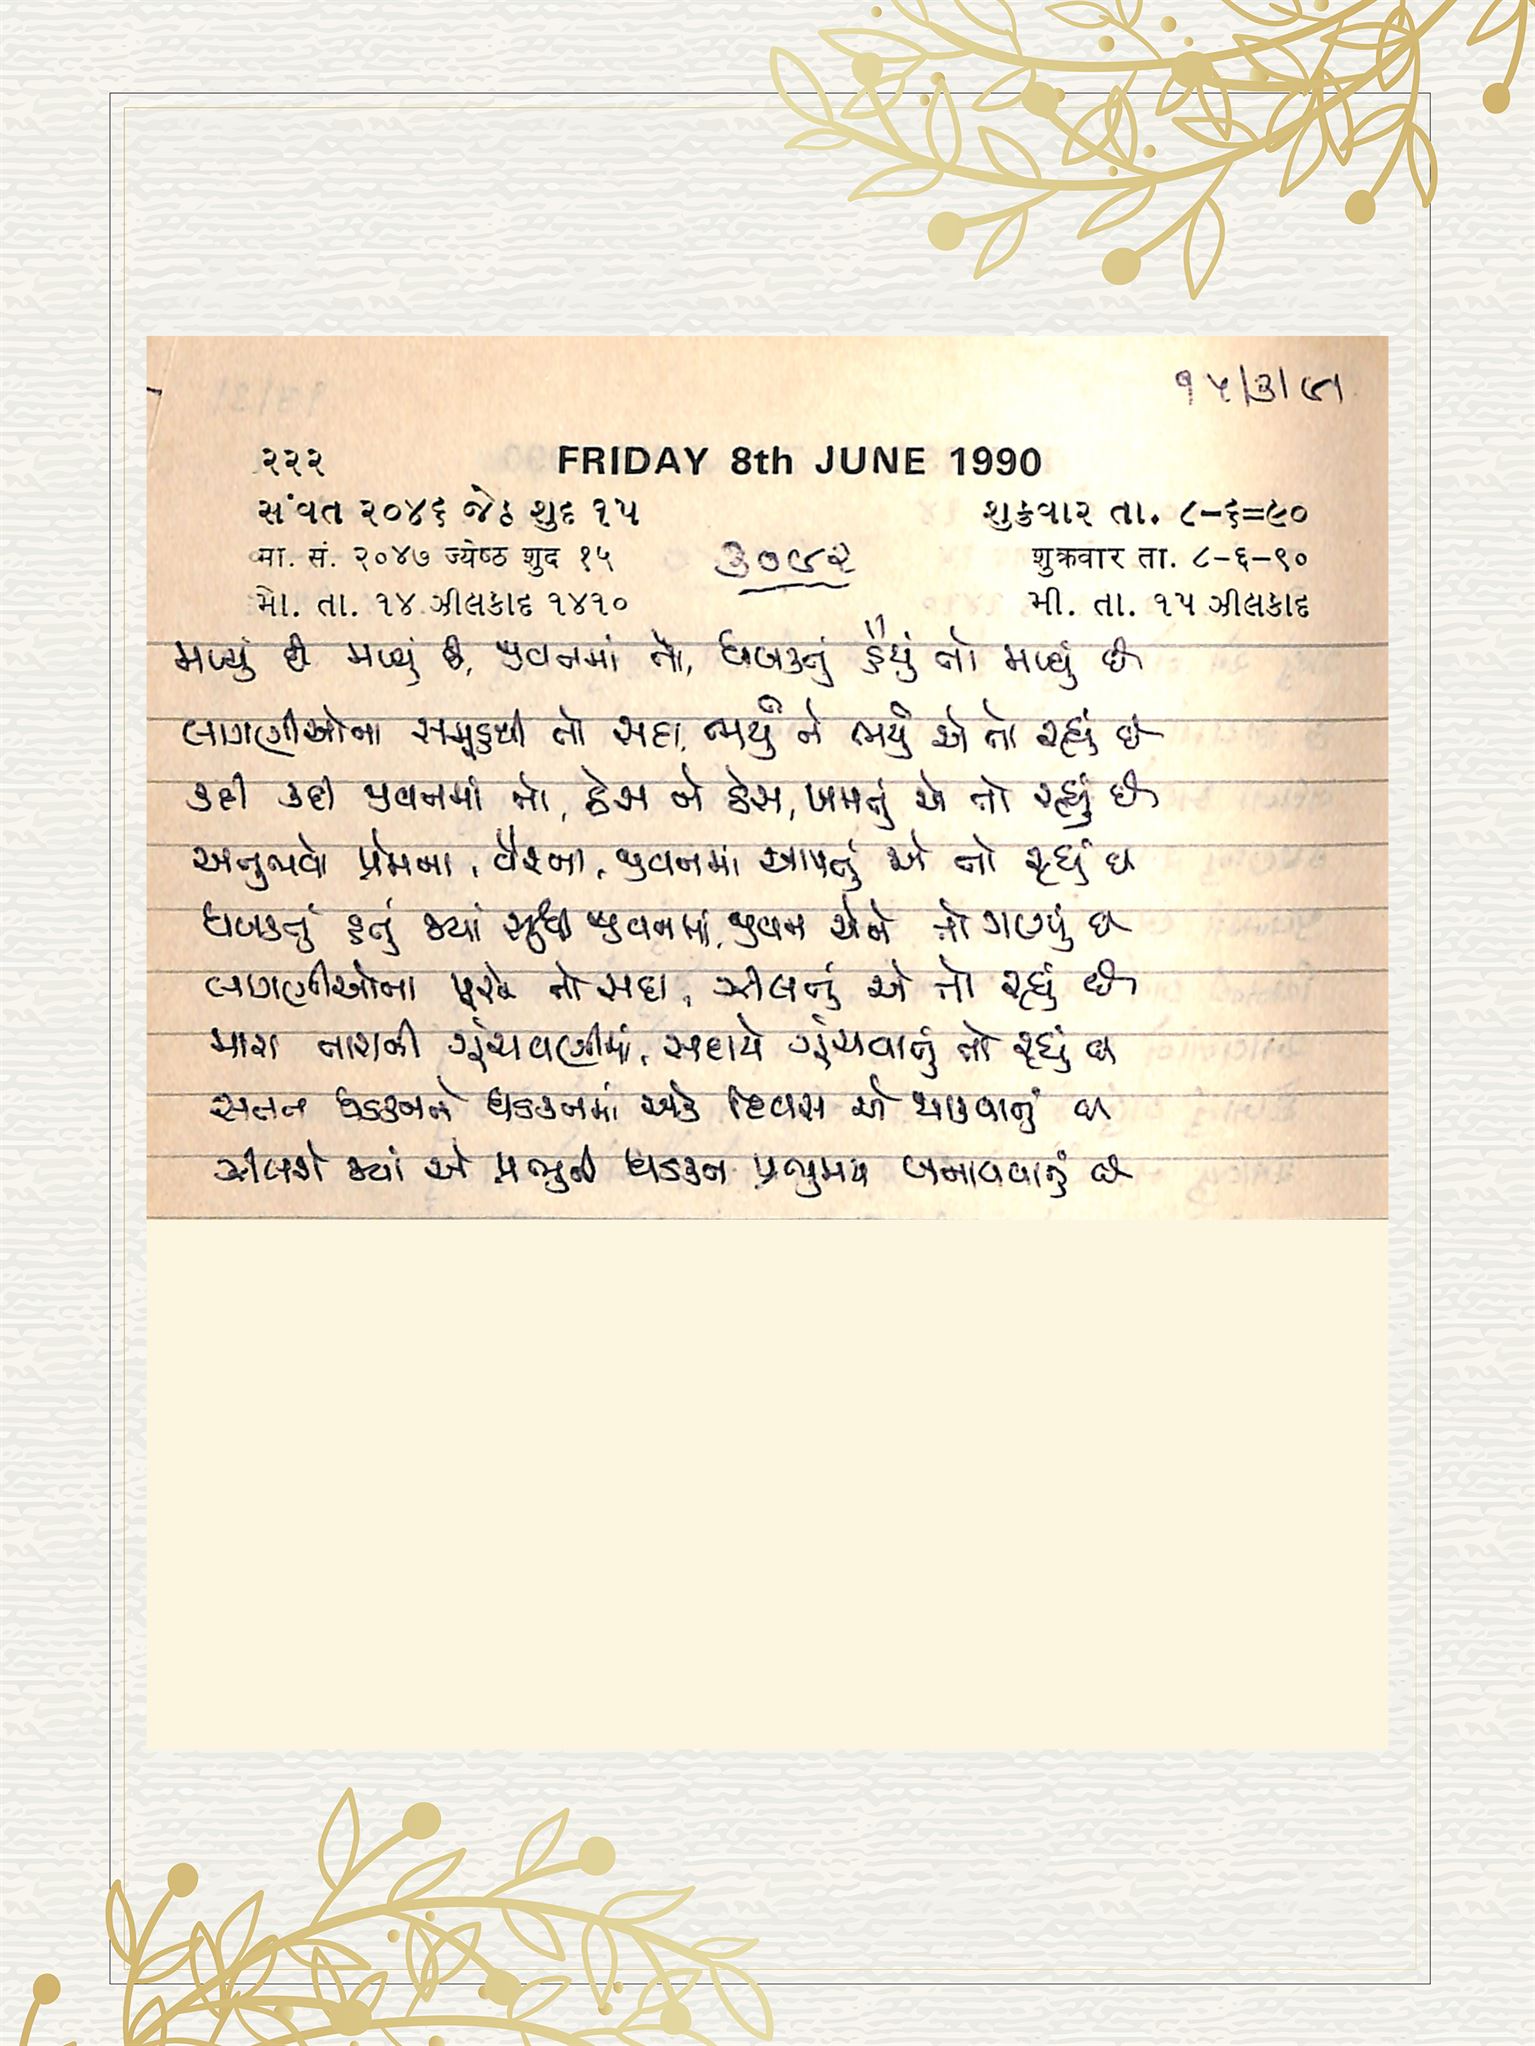 ૧૫/૩/૯૧
૨૨૨ FRIDAY 8th JUNE 1990
સંવત ૨૦૪૬ જેઠ શુદ ૧૫ શુક્રવાર તા. ૮-૬=૯૦
मा. सं. २०४७ ज्येष्ठ शुद १५ ૩૦૯૨ शुक्रवार ता. ८-६-९०
મો. તા. ૧૪ ઝીલકાદ ૧૪૧૦ મી. તા. ૧૫ ઝીલકાદ
મળ્યું છે મળ્યું છે, જીવનમાં તો, ધબકતું હૈયું તો મળ્યું છે
લાગણીઓના સમૂહથી તો સદા, ભર્યું ને ભર્યું એ તો રહ્યું છે
કદી કદી જીવનમાં તો, ઠેસ ને ઠેસ, ખમતું એ તો રહ્યું છે
અનુભવો પ્રેમના, વૈરના, જીવનમાં આપતું એ તો રહ્યું છે
ધબકતું હતું જ્યાં સુધી જીવનમાં, જીવન એને તો ગણ્યું છે
લાગણીઓના પૂરને તો સદા, ઝીલતું એ તો રહ્યું છે
મારા તારાની ગૂંચવણીમાં, સદાયે ગૂંચવાતું તો રહ્યું છે
સતત ધડકનને ધડકનમાં એક દિવસ એ થાકવાનું છે
ઝીલશે જ્યાં એ પ્રભુની ધડકન પ્રભુમય બનાવવાનું છે